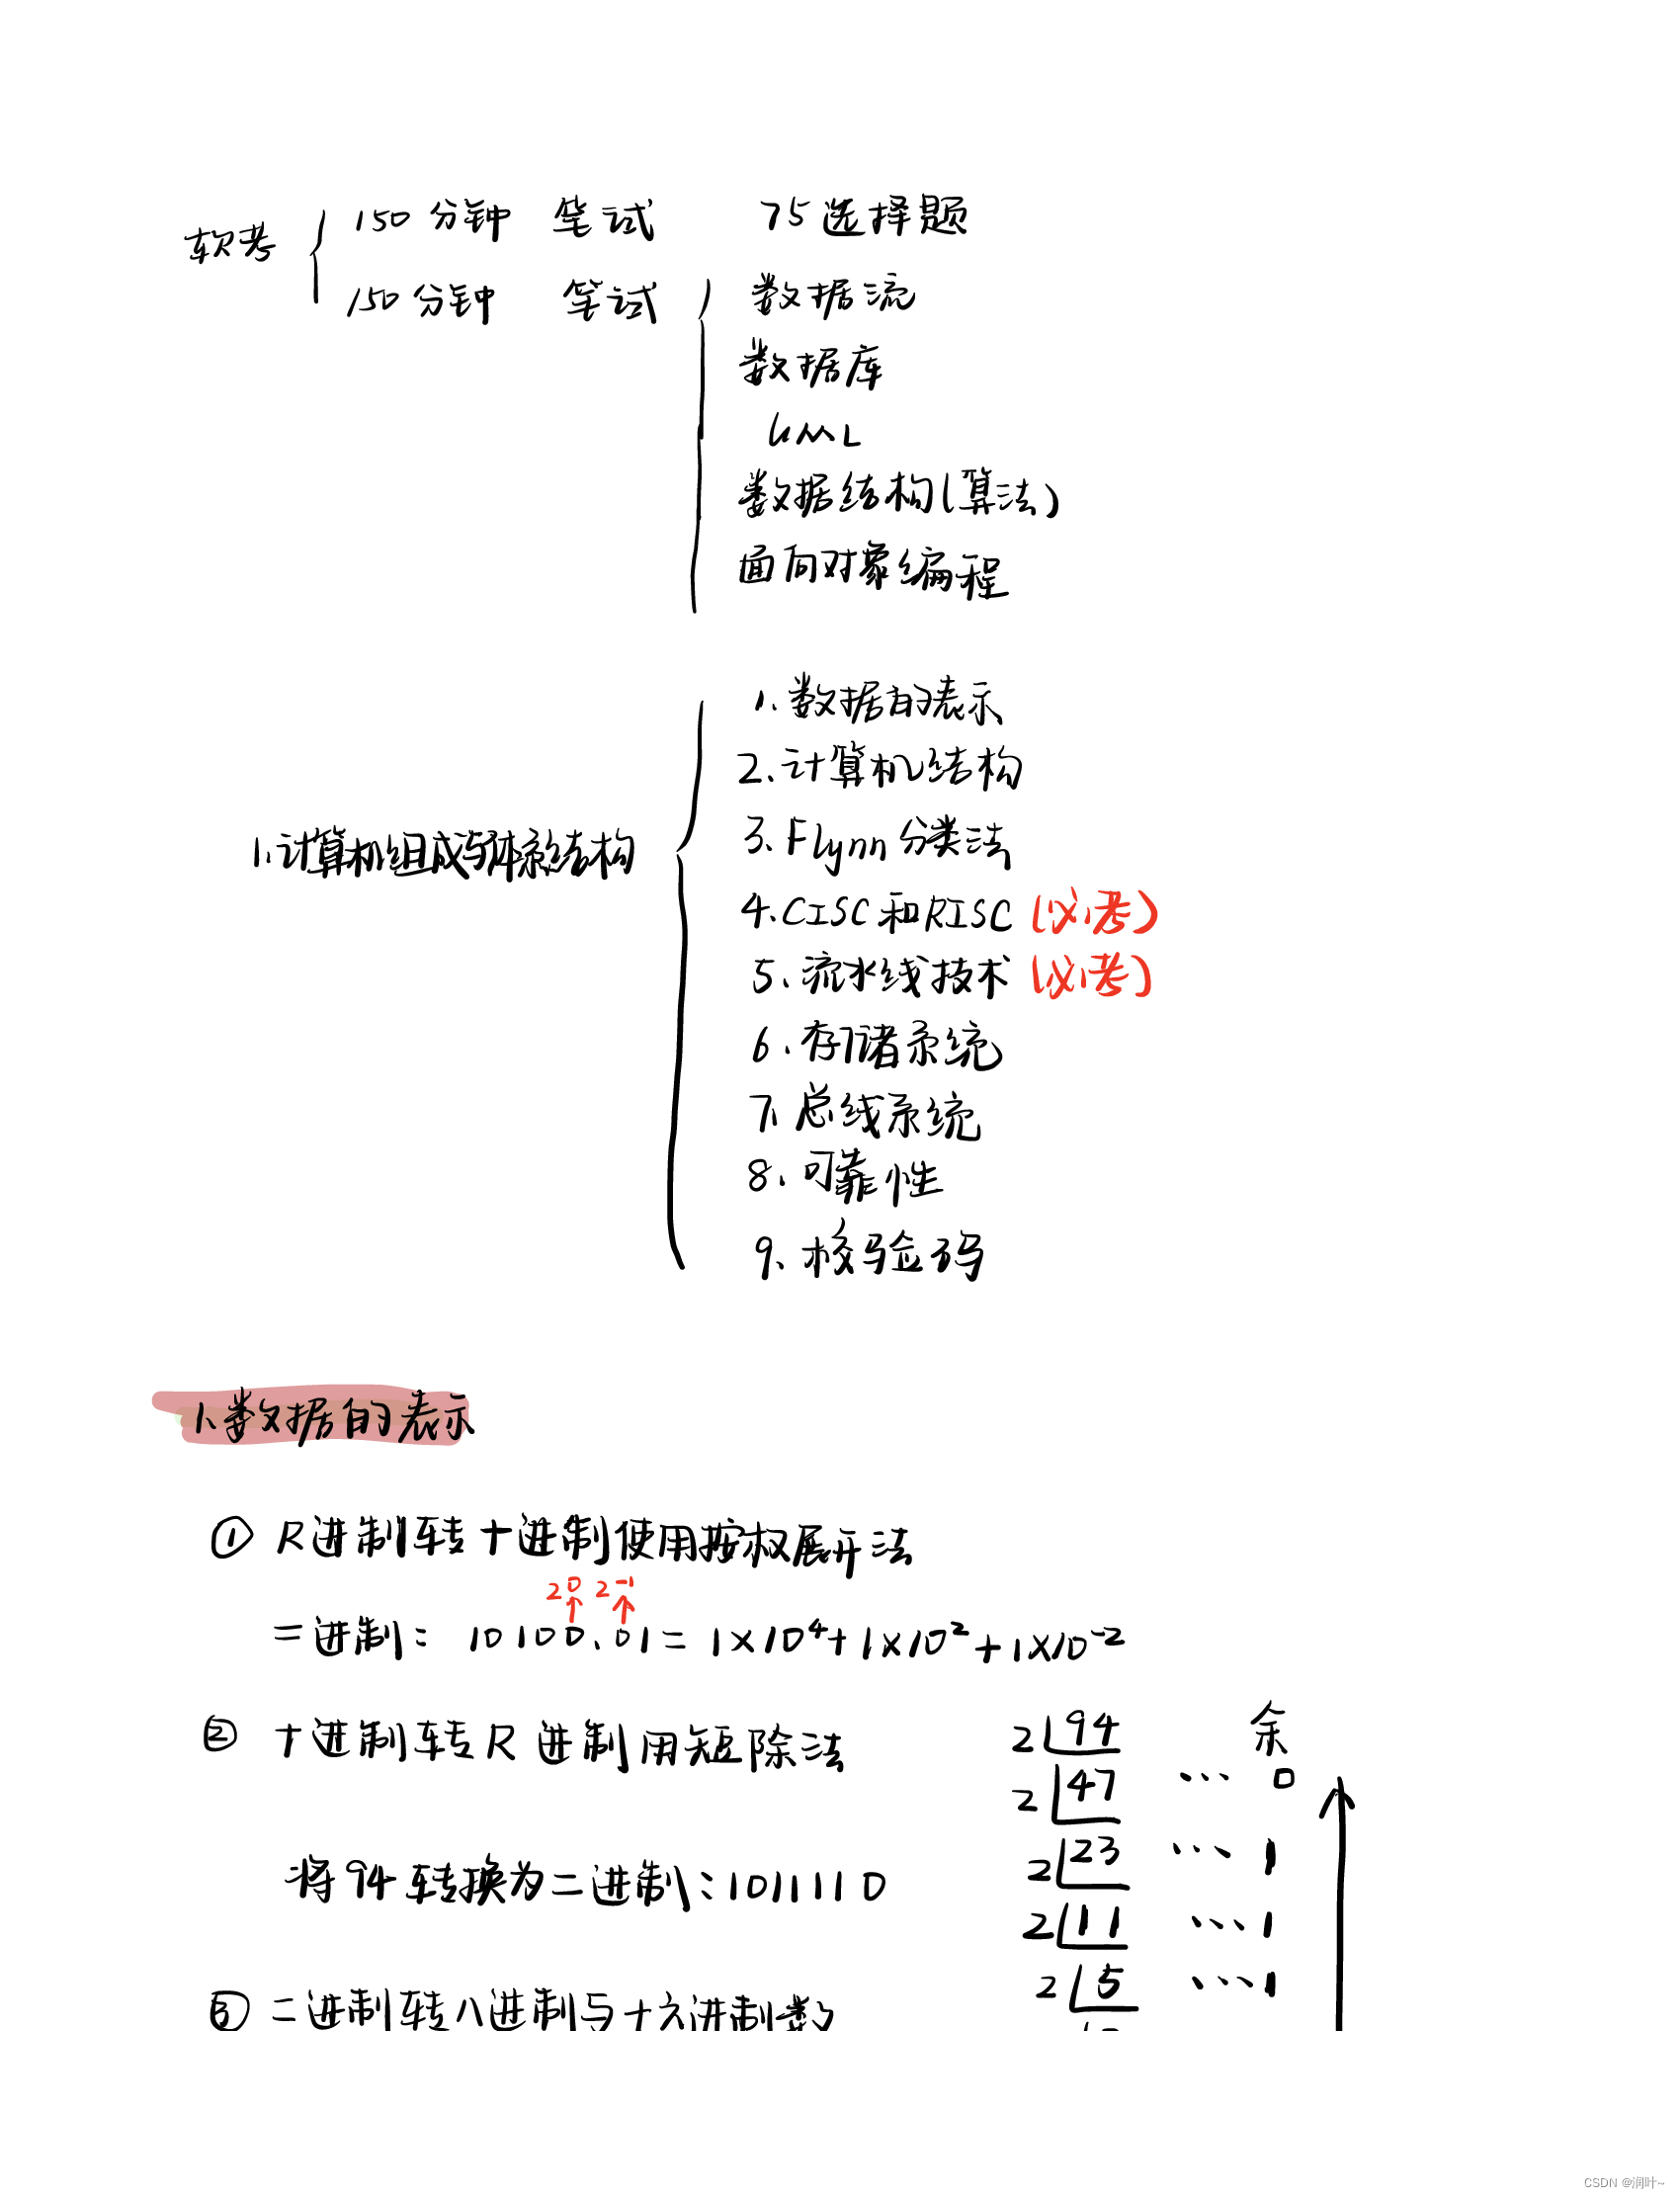 软考 150分钟 笔试 75选择题
150分钟 笔试 数据流
数据库
UML
数据结构(算法)
面向对象编程
1.计算机组成与体系结构
1.数据的表示
2.计算机结构
3.Flynn分类法
4.CISC和RISC(必考)
5.流水线技术(必考)
6.存储系统
7.总线系统
8.可靠性
9.校验码
1.数据的表示
① R进制转十进制使用按权展开法
2^0 2^-1
二进制: 10100.01=1×10^4+1×10^2+1×10^-2
② 十进制转R进制用短除法
将94转换为二进制:1011110
2 94 余
2 47 … 0
2 23 … 1
2 11 … 1
2 5 … 1
③ 二进制转八进制与十六进制数
CSDN @润叶~